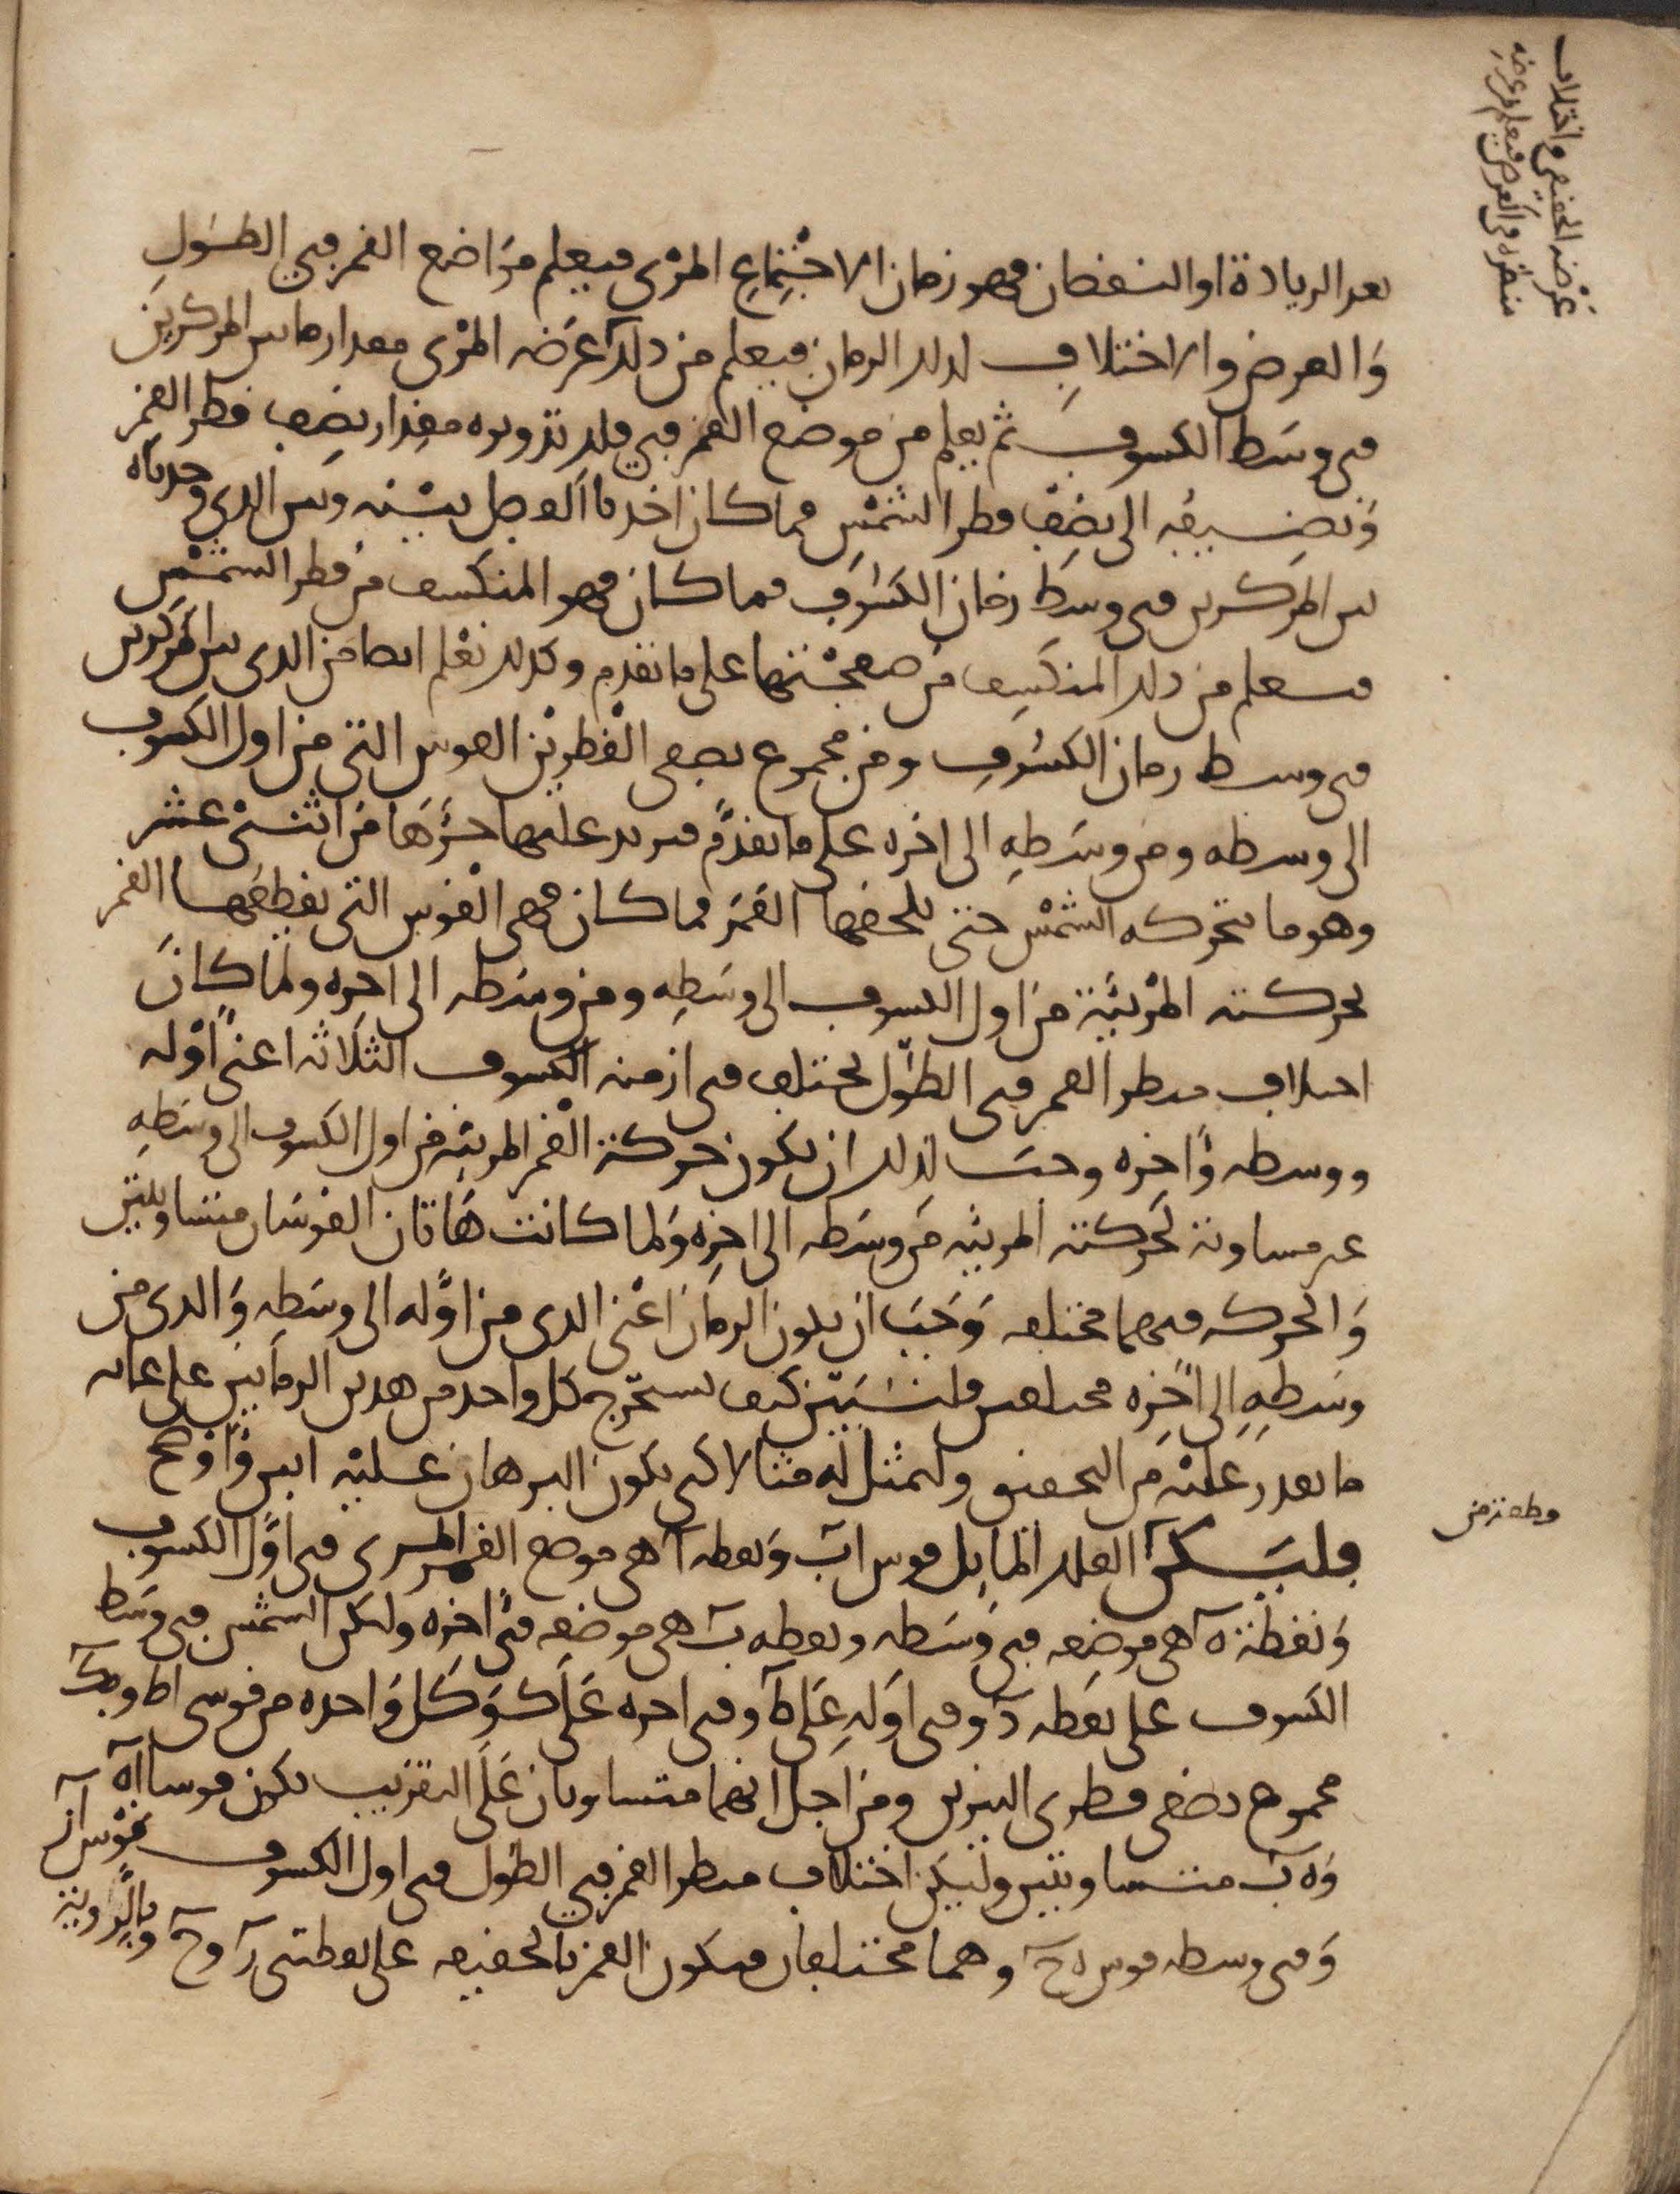 عرضه الحقيقي واختلاف
منظره في العرض فيعلم من عرضه
بعد الزيادة او النقصان فهو زمان الاجتماع المرئي فيعلم مواضع القمر في الطول
والعرض والاختلاف لذلك الزمان فيعلم من ذلك عرضه المرئي مقدار ما بين المركزين
في وسط الكسوف ثم يعلم من موضع القمر في فلك تدويره مقدار نصف قطر القمر
ونضيفه الى نصف قطر الشمس فما كان اخذنا الفضل بينه وبين الذي وجدناه
بين المركزين في وسط زمان الكسوف فما كان فهو المنكسف من قطر الشمس
فيعلم من ذلك المنكسف من صفحتها على ما تقدم وكذلك نعلم ايضا من الذي بين المركزين
في وسط زمان الكسوف ومن مجموع نصفي القطرين القوس التي من اول الكسوف
الى وسطه ومن وسطه الى اخره على ما تقدم فنزيد عليها جزءها من اثني عشر
وهو ما تتحركه الشمس حتى يلحقها القمر فما كان فهي القوس التي يقطعها القمر
بحركته المرئية من اول الكسوف الى وسطه ومن وسطه الى اخره ولما كان
اختلاف منظر القمر في الطول يختلف في ازمنة الكسوف الثلاثة اعني اوله
ووسطه واخره وجب لذلك ان يكون حركة القمر المرئية من اول الكسوف الى وسطه
غير مساوية لحركته المرئية من وسطه الى اخره ولما كانت هاتان القوسان متساويتين
والحركة فيهما مختلفة وجب ان يكون الزمان اعني الذي من اوله الى وسطه والذي من
وسطه الى اخره مختلفين فلنبين كيف نستخرج كل واحد من هذين الزمانين على غاية
ما نقدر عليه من التحقيق ولنمثل له مثالا كي يكون البرهان عليه ابين واوضح
فليكن الفلك المايل قوس اب ونقطة ا هي موضع القمر المرئي في اول الكسوف
ونقطة ه هي موضعه في وسطه ونقطة ب هي موضعه في اخره ولتكن الشمس في وسط
الكسوف على نقطة د وفي اوله على ط وفي اخره على ك وكل واحدة من قوسي اط وبك
مجموع نصفي قطري النيرين ومن اجل انهما متساويان على التقريب يكون قوسا اه
وه ب متساويتين وليكن اختلاف منظر القمر في الطول في اول الكسوف قوس از
وفي وسطه قوس هح وهما مختلفان فيكون القمر بالحقيقة على نقطتي ز وح وبالروية